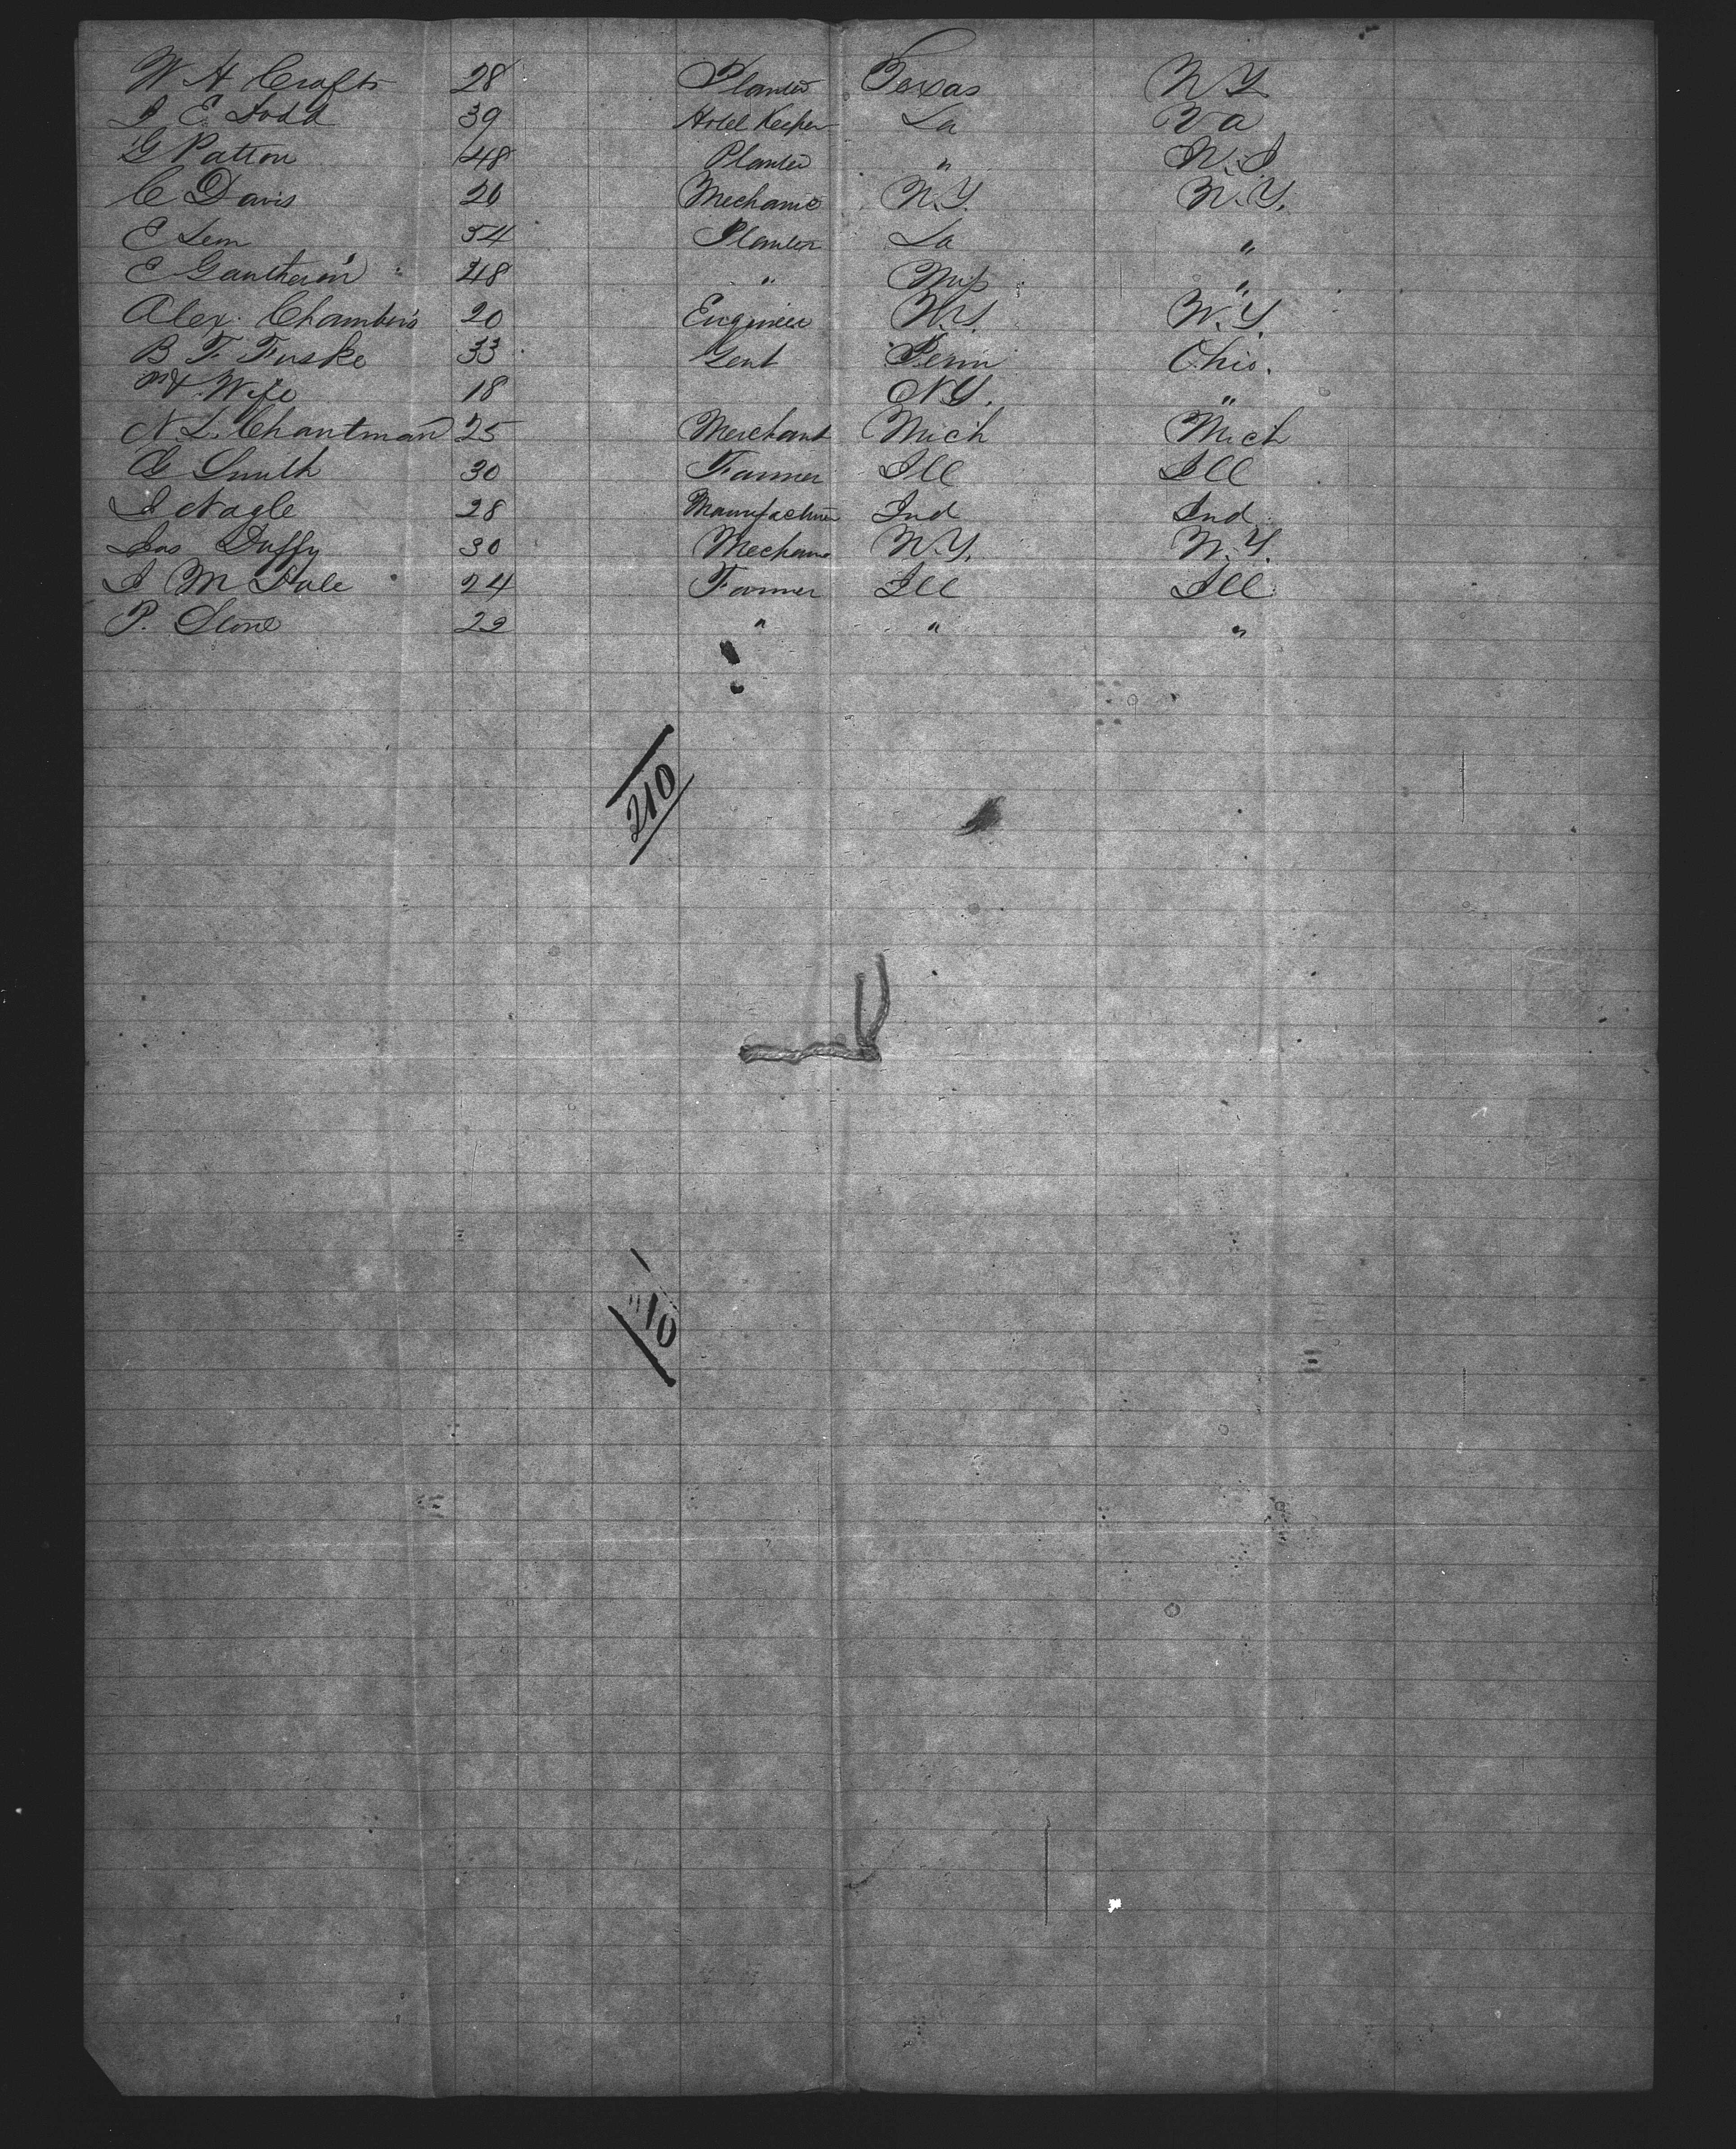 W H Crafts 28 Planter Texas N Y
J E Todd 39 Hotel Keeper La Va
G Patton 48 Planter " N. J
C Davis 20 Mechanic N.Y. N.Y.
E Lem 54 Planter La "
E Gautheron 48 " Miss "
Alex. Chambers 20 Engineer N.Y. N.Y.
B F Fuske 33 Gent Penn Ohio.
" & Wife 18 N Y. "
N. L. Chantman 25 Merchant Mich Mich
G Smith 30 Farmer Ill Ill
J Nagle 28 Manufacturer Ind Ind
Jas Duffy 30 Mechanic N.Y. N.Y.
J M Dale 24 Farmer Ill Ill
P. Stone 22 " " "
210
10